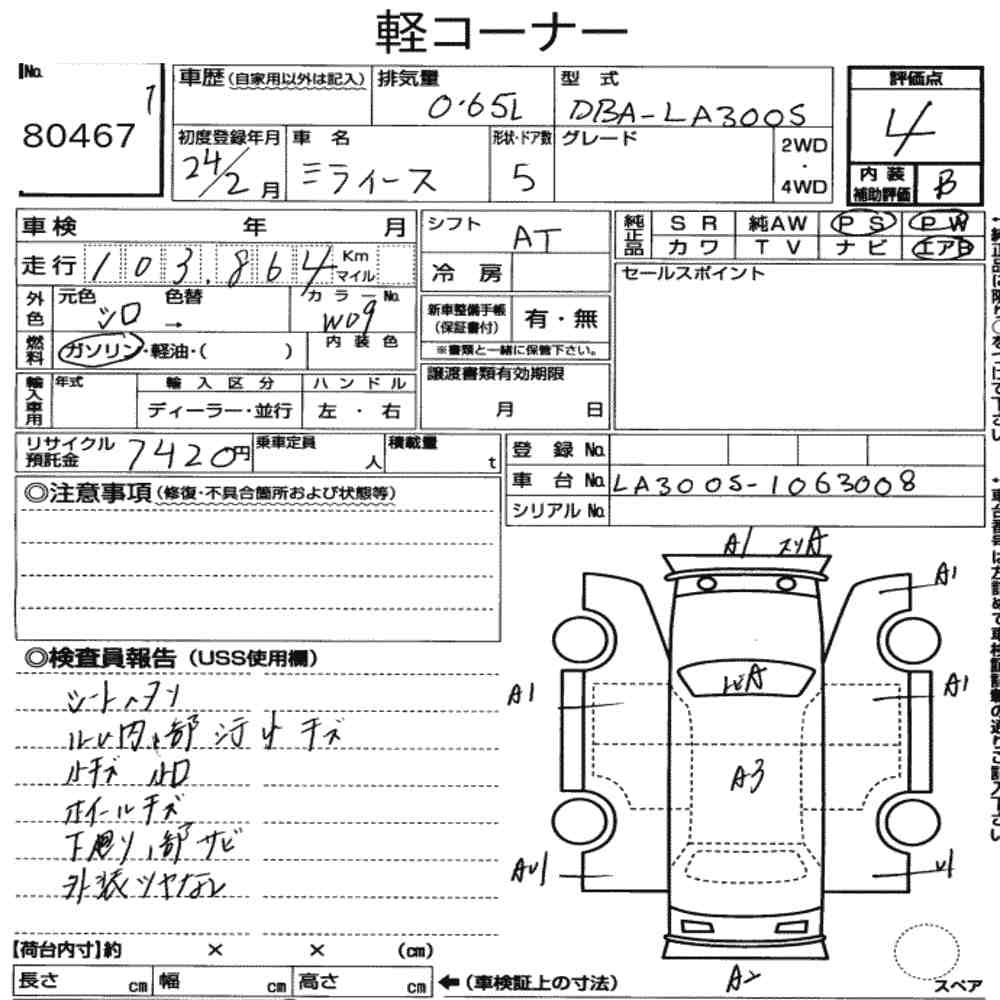 軽コーナー
No.
80467
1
車歴(自家用以外は記入)
排気量
0.65L
型 式
DBA-LA300S
評価点
4
初度登録年月
24/2月
車 名
ミライース
形状・ドア数
5
グレード
2WD
・
4WD
内 装
補助評価
B
車検 年 月
走行 103,864 Km マイル
シフト
AT
冷 房
純正品
SR 純AW PS PW
カワ TV ナビ エアB
セールスポイント
外色
元色 色替
シロ →
カラーNo.
W09
新車整備手帳
(保証書付)
有・無
※書類と一緒に保管下さい。
燃料
ガソリン・軽油・( )
内装色
輸入車用
年式
輸入区分
ディーラー・並行
ハンドル
左・右
譲渡書類有効期限
月 日
リサイクル
預託金
7420円
乗車定員
人
積載量
t
登 録 No.
車 台 No.
LA300S-1063008
シリアル No.
◎注意事項(修復・不具合箇所および状態等)
◎検査員報告(USS使用欄)
シート
キズ
ホイールキズ
下廻り、部サビ
外装ツヤなし
A1
A1
A1
A1
A3
A2
スペア
【荷台内寸】約 × × (cm)
長さ cm
幅 cm
高さ cm
←(車検証上の寸法)